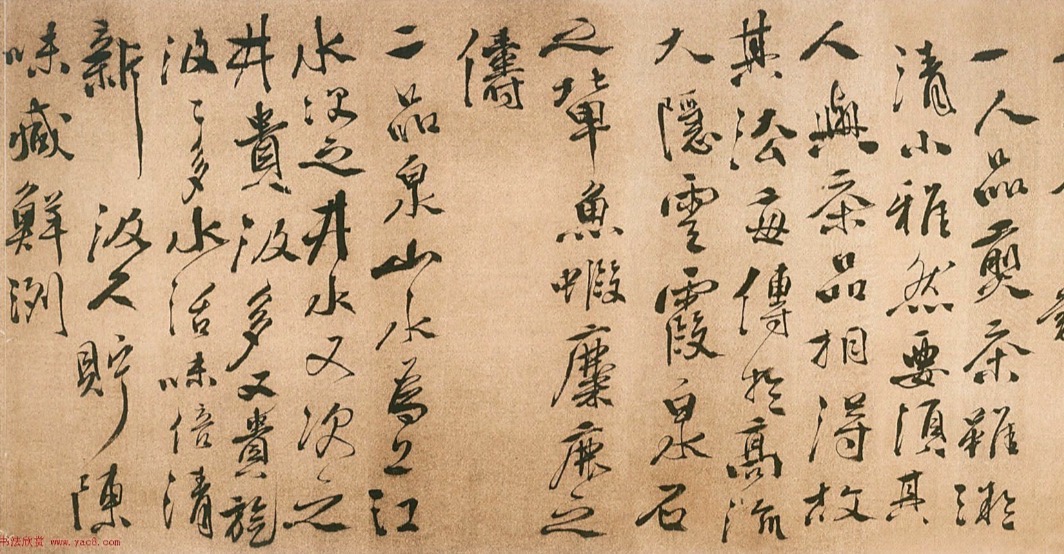 一人品煎茶雖凝
清小雅然要須其
人與茶品相得故
其法每傳於高流
大隱雲霞泉石
之輩魚蝦麋鹿之
儔
二品泉山水為上江
水次之井水又次之
井貴汲多又貴旋
汲々多水活味倍清
新汲久貯陳
味減鮮冽
书法欣赏 www.yac8.com